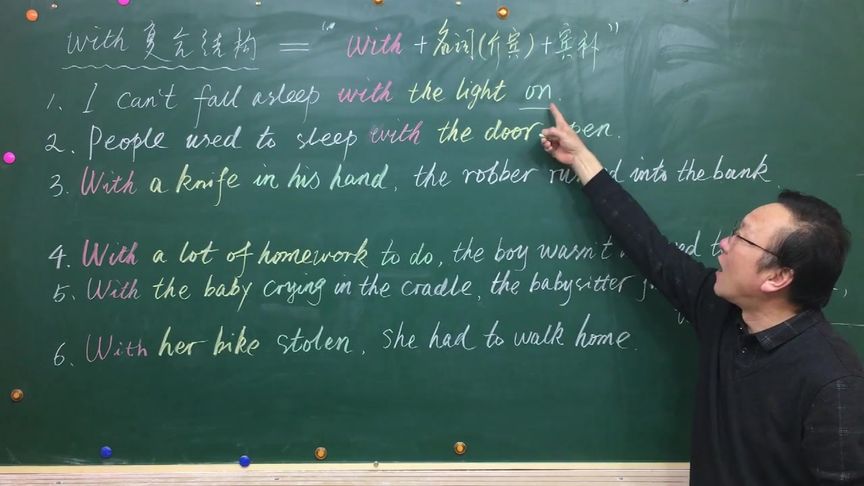 with复合结构 = “With+名词(介宾)+宾补”
1. I can't fall asleep with the light on.
2. People used to sleep with the door open.
3. With a knife in his hand, the robber rushed into the bank.
4. With a lot of homework to do, the boy wasn't
5. With the baby crying in the cradle, the babysitter
6. With her bike stolen, she had to walk home.